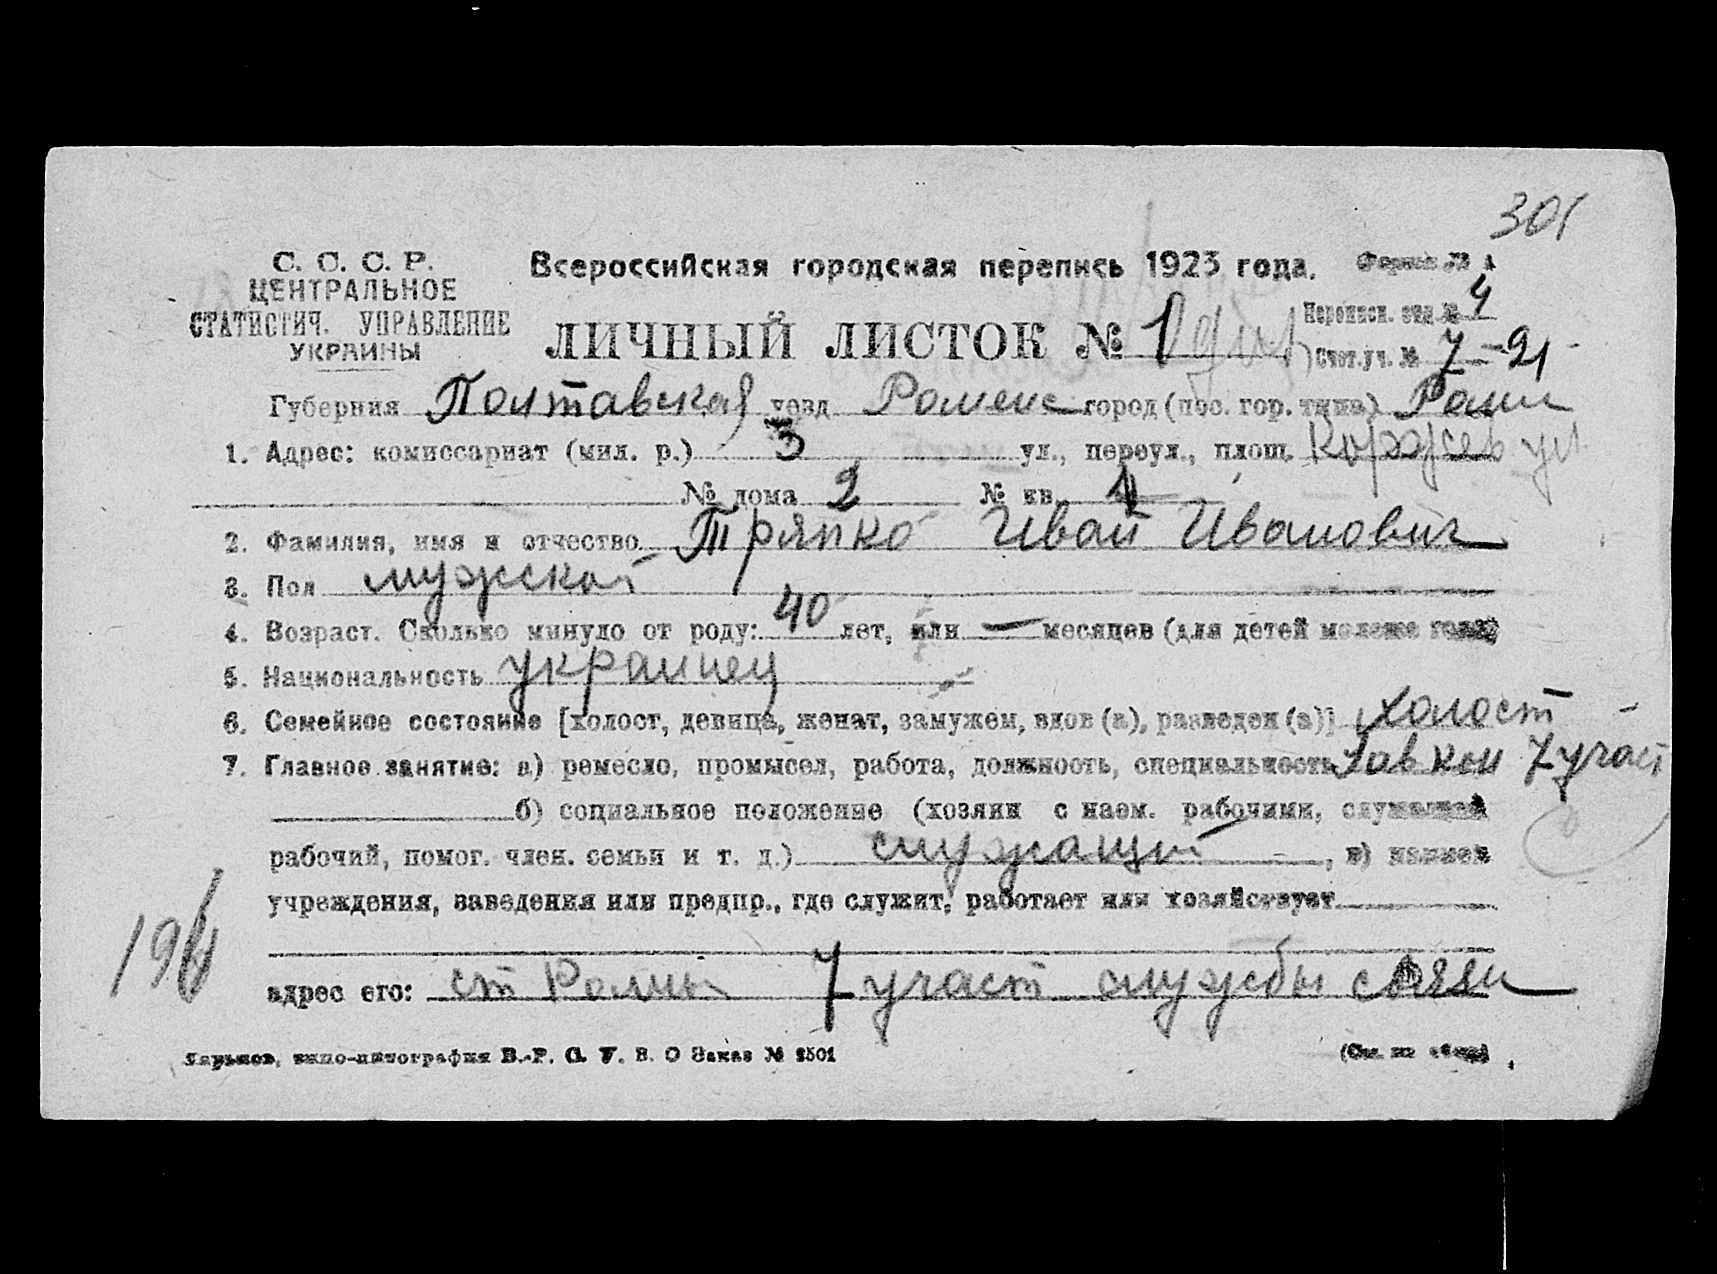 301
С. С. С. Р.
ЦЕНТРАЛЬНОЕ
СТАТИСТИЧ. УПРАВЛЕНИЕ
УКРАИНЫ
Всероссийская городская перепись 1923 года.
Форма № 1
ЛИЧНЫЙ ЛИСТОК № 1
Переписн. отд. № 4
Счет. уч. № 7-91
Губерния Полтавская уезд Роменс город (пос. гор. типа) Ромны
1. Адрес: комиссариат (мил. р.) 3 ул., переул., площ.
№ дома 2 № кв. 1
2. Фамилия, имя и отчество Тряпко Иван Иванович
3. Пол мужской
4. Возраст. Сколько минуло от роду: 40 лет, или — месяцев (для детей моложе года)
5. Национальность украинец
6. Семейное состояние [холост, девица, женат, замужем, вдов (а), разведен (а)] холост
7. Главное занятие: а) ремесло, промысел, работа, должность, специальность 7 участ
б) социальное положение (хозяин с наем. рабочими, служащий
рабочий, помог. член. семьи и т. д.) служащий, в) назван
учреждения, заведения или предпр., где служит, работает или хозяйствует
адрес его: ст Ромны 7 участ службы связи
Харьков, типо-литография В.-У. С. У. В. О Заказ № 2501
(См. на обор.)